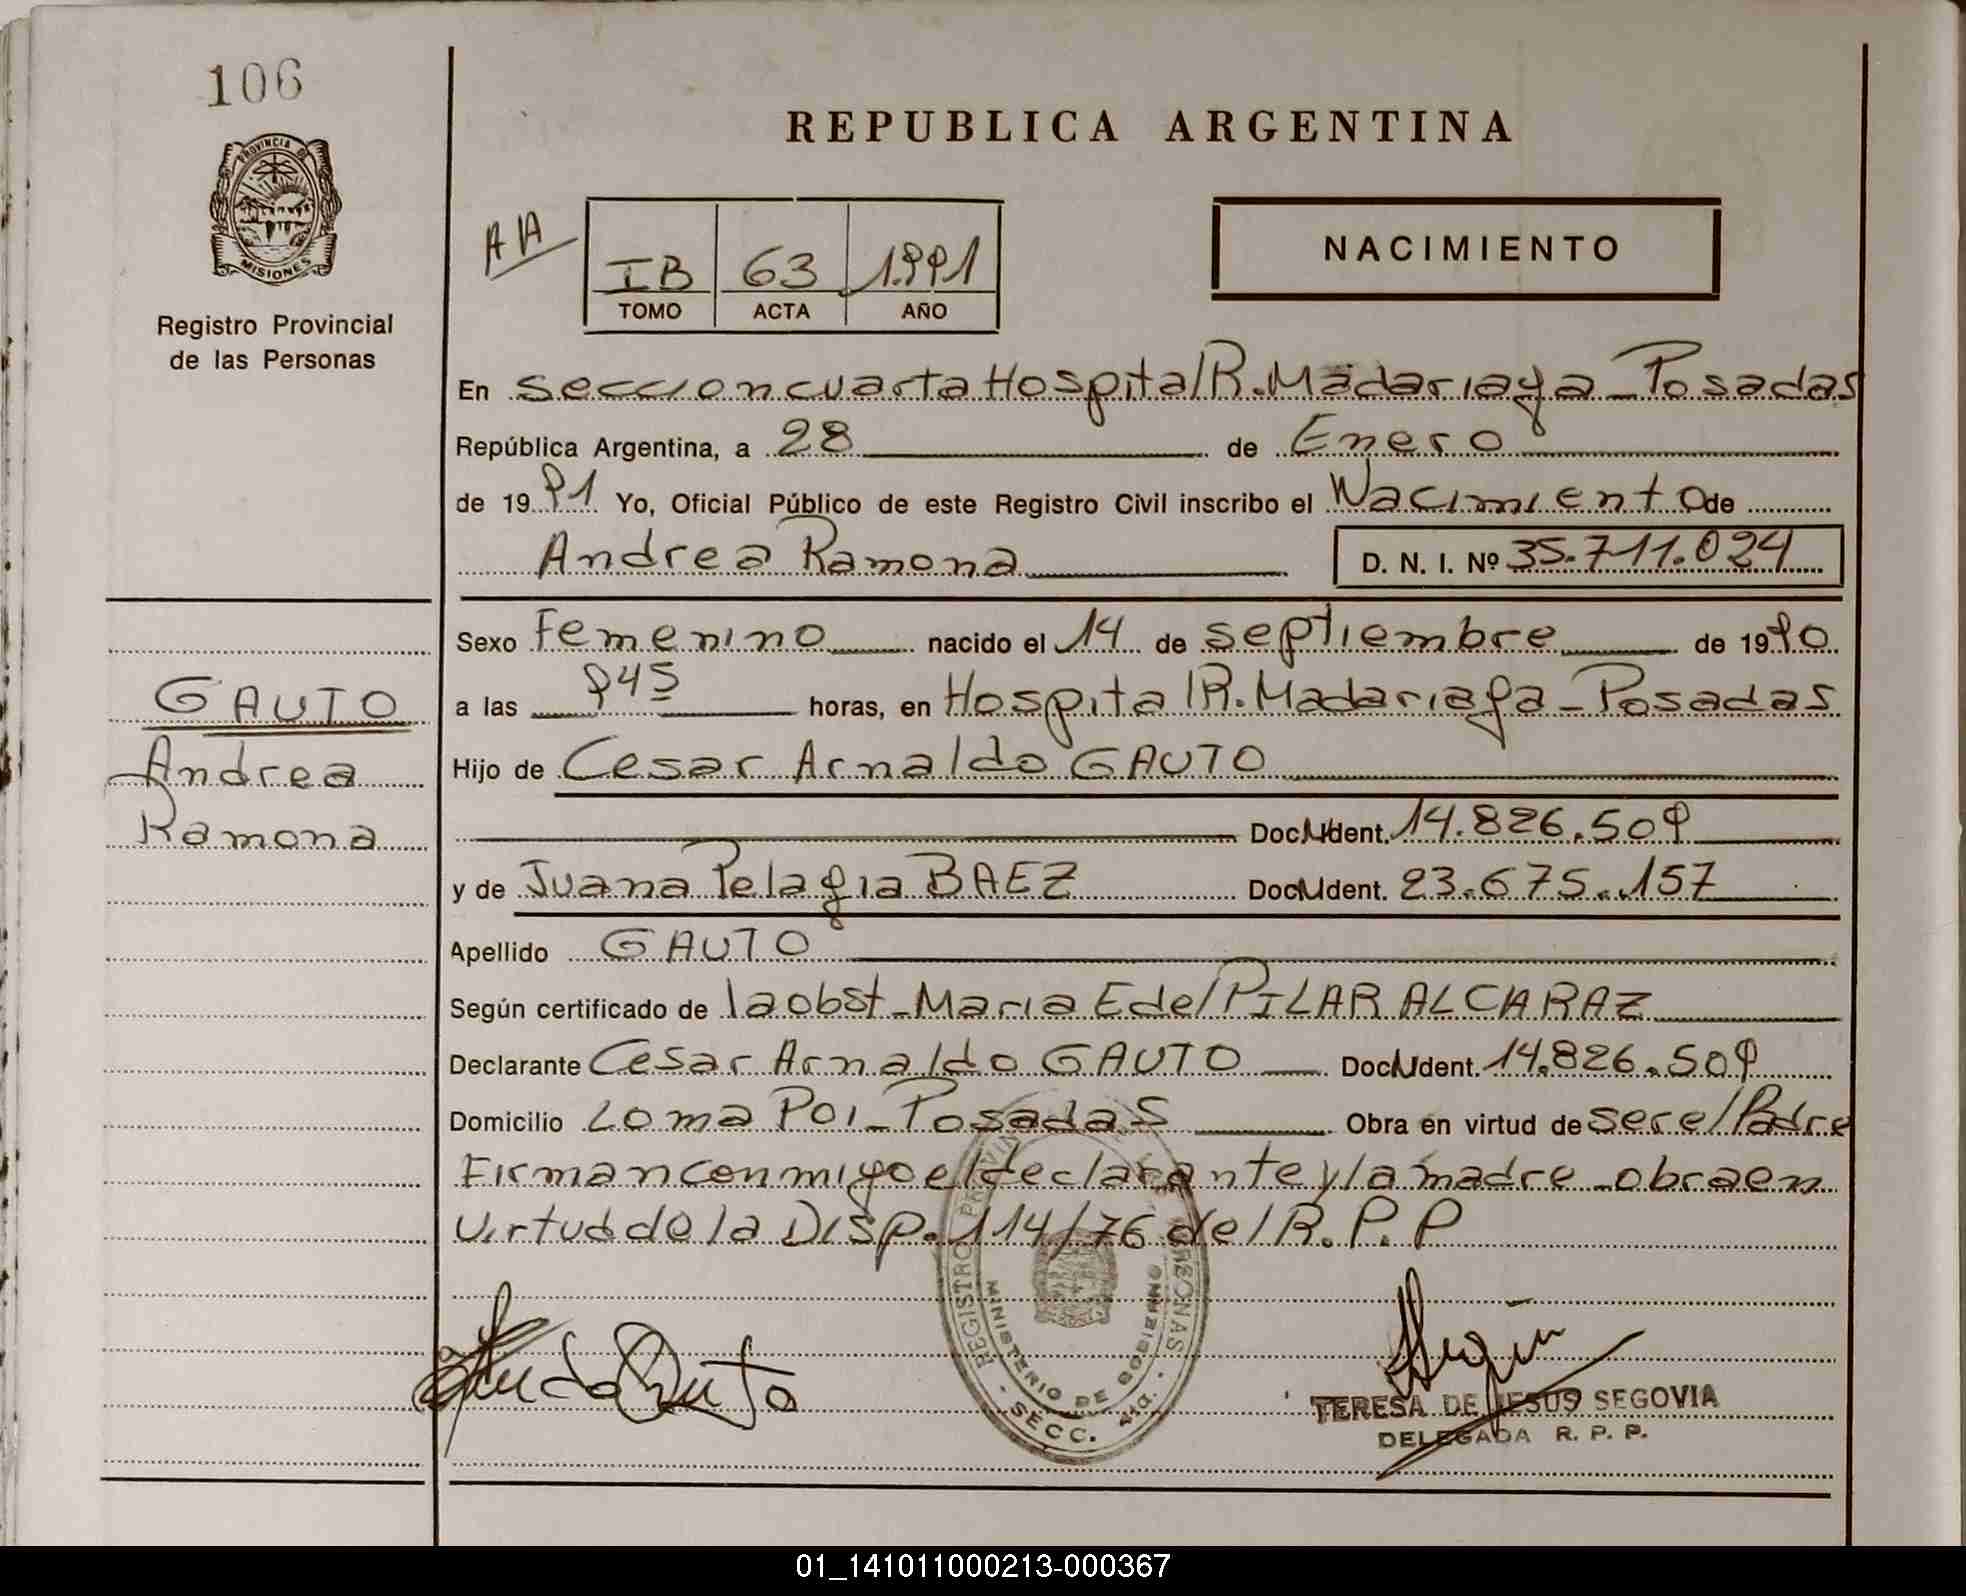 106
PROVINCIA DE
MISIONES
Registro Provincial
de las Personas
REPUBLICA ARGENTINA
AA
IB 63 1.991
TOMO ACTA AÑO
NACIMIENTO
En Seccion cuarta Hospital R. Madariaga - Posadas
República Argentina, a 28 de Enero
de 1991 Yo, Oficial Público de este Registro Civil inscribo el Nacimiento de
Andrea Ramona D. N. I. Nº 35.711.024
Sexo Femenino nacido el 14 de septiembre de 1990
a las 945 horas, en Hospital R. Madariaga - Posadas
GAUTO
Andrea
Ramona
Hijo de Cesar Arnaldo GAUTO
Doc. Ident. 14.826.509
y de Juana Pelagia BAEZ Doc. Ident. 23.675.157
Apellido GAUTO
Según certificado de la obst - Maria Edel PILAR ALCARAZ
Declarante Cesar Arnaldo GAUTO Doc. Ident. 14.826.509
Domicilio Loma Poi - Posadas Obra en virtud de ser el Padre
Firman conmigo el declarante y la madre - obra en
virtud de la Disp. 114/76 del R.P.P
REGISTRO PROVINCIAL DE LAS PERSONAS
MINISTERIO DE GOBIERNO
SECC. 4ta.
TERESA DE JESUS SEGOVIA
DELEGADA R. P. P.
01_141011000213-000367